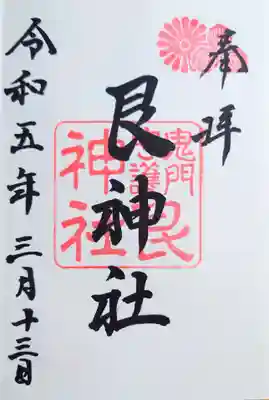 奉拝
艮神社
鬼門守護
艮
神社
令和五年三月十三日